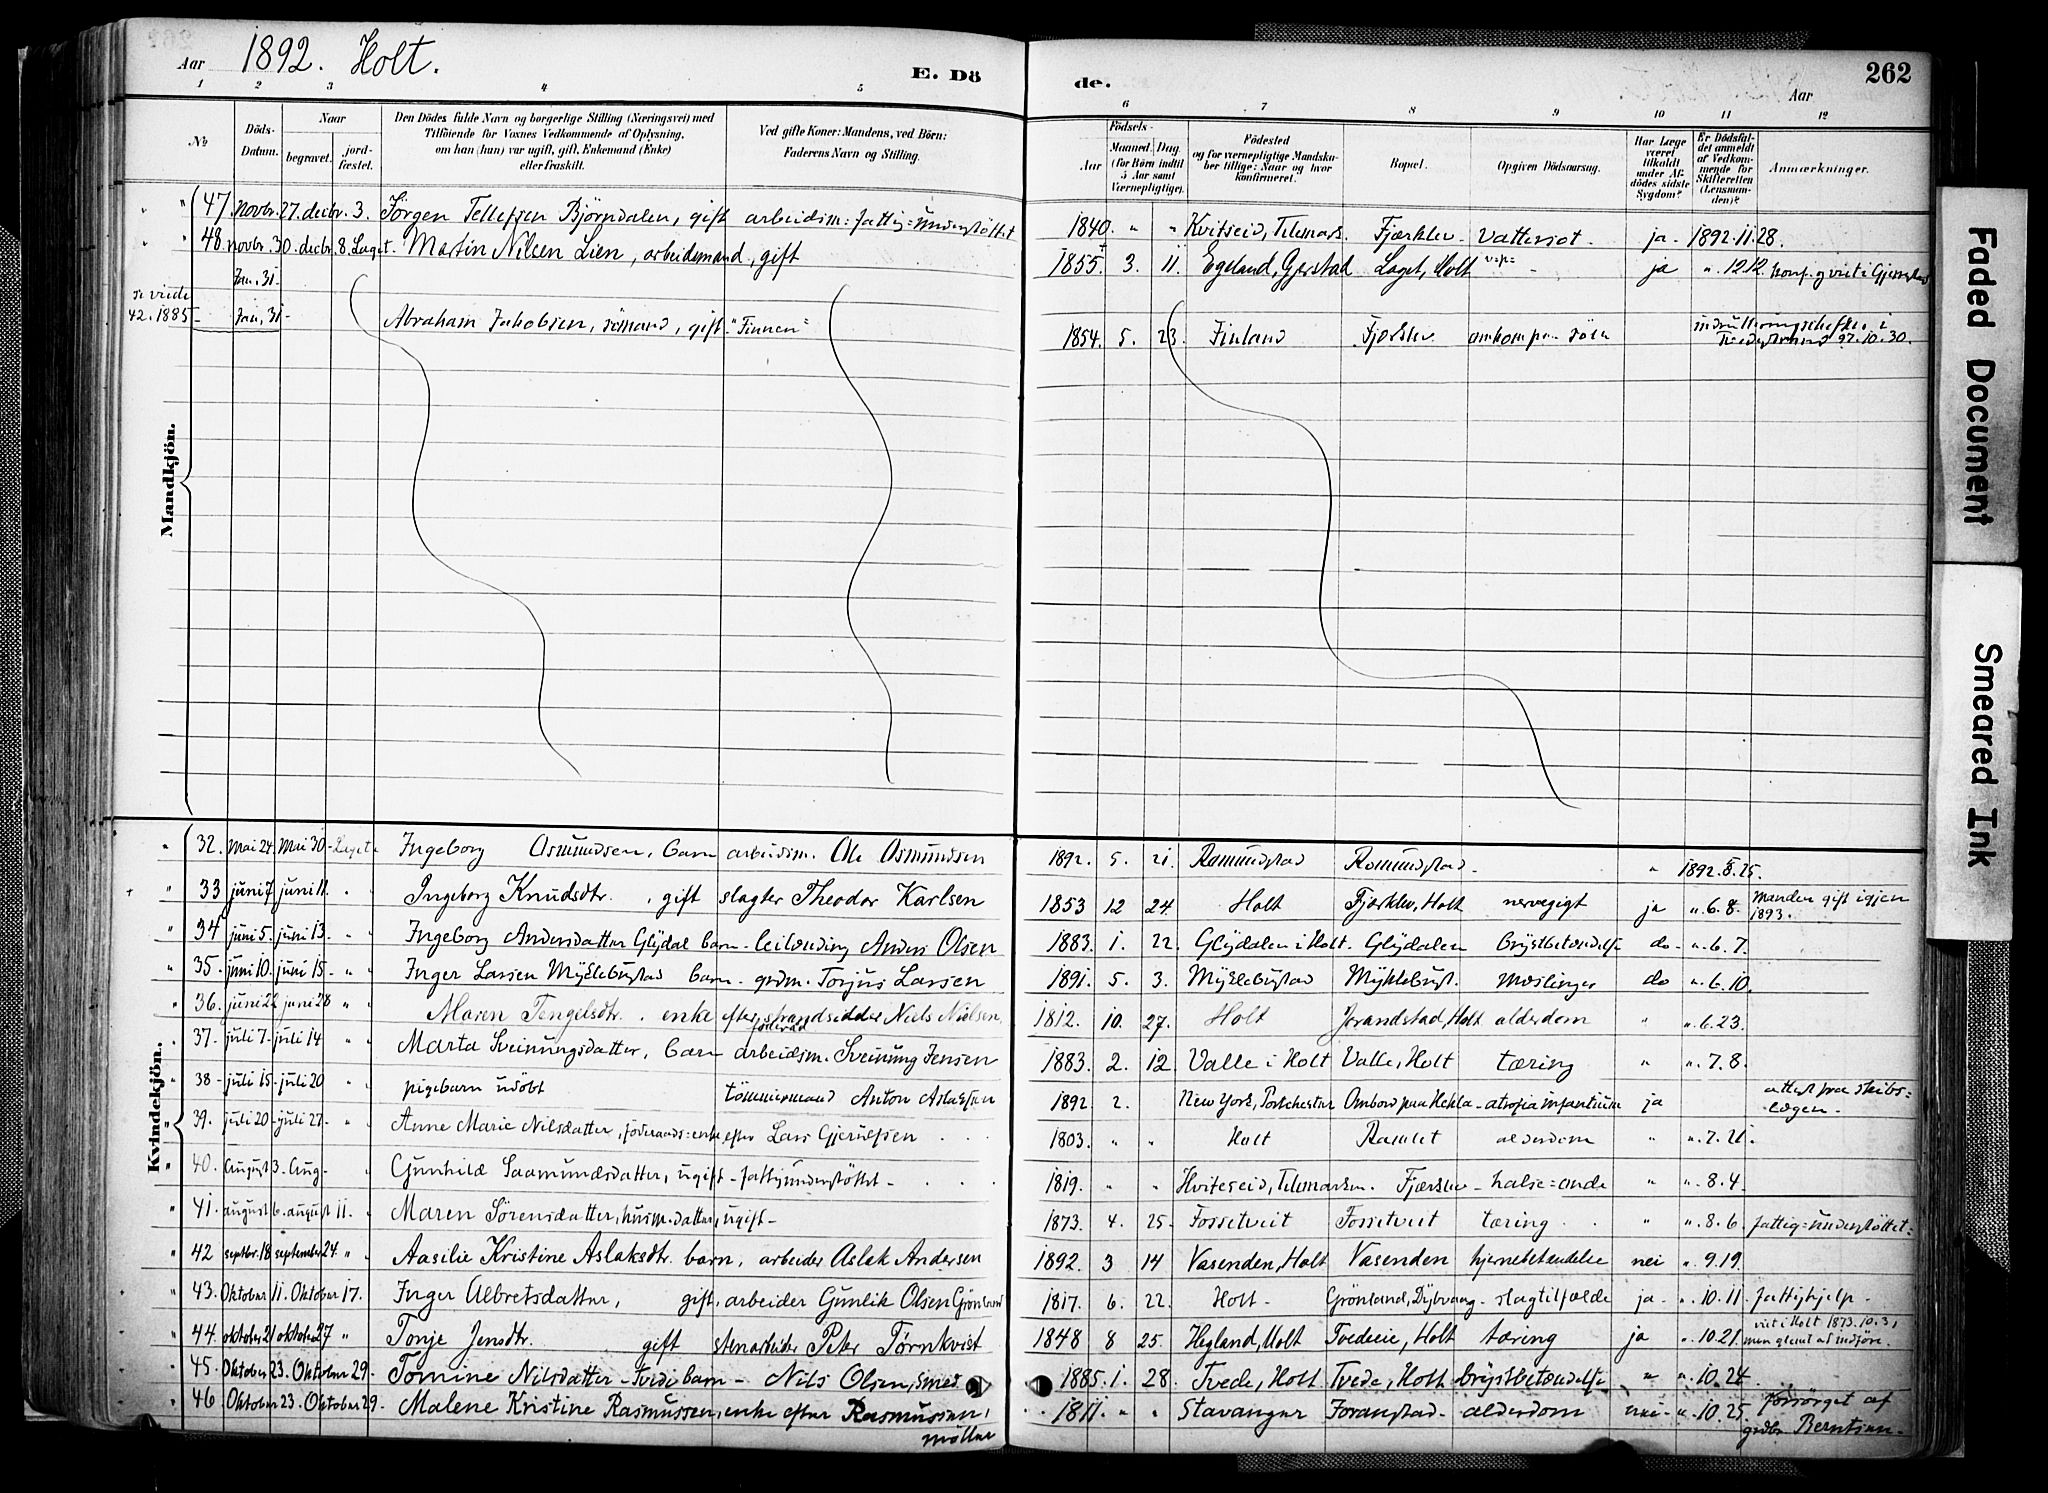 Aar 1892. Holt. E. Dö
de. Aar 262
1 2 3 4 5
6 7 8 9 10 11 12
No Döds-Datum. Naar begravet. jordfæstet. Den Dödes fulde Navn og borgerlige Stilling (Næringsvei) med Tilföiende for Voxnes Vedkommende af Oplysning, om han (hun) var ugift, gift, Enkemand (Enke) eller fraskilt. Ved gifte Koner: Mandens, ved Börn: Faderens Navn og Stilling.
Födsels- Aar Maaned. Dag (for Börn indtil 5 Aar samt Værnepligtige). Födested og for værnepligtige Mandskaber tillige: Naar og hvor konfirmeret. Bopæl. Opgiven Dödsaarsag. Har Læge været tilkaldt under Afdödes sidste Sygdom? Er Dödsfaldet anmeldt af Vedkommende for Skifteretten (Lensmanden)? Anmærkninger.
Mandkjön.
" " 47 Novbr. 27. decbr. 3. Jörgen Tellefsen Björndalen, gift arbeidsm: fattig=understöttet 1840. " " Kvitseid, Telemark. Fjærklev- Vattersot. ja- 1892.11.28.
" " 48 novbr. 30. decbr. 8. Laget. Martin Nilsen Lien, arbeidsmand, gift 1855. 3. 11. Egeland, Gjerstad Laget, Holt ja ". 12.12. konf. og viet i Gjerrestad
Jan, 31
se videre 42. 1885- Jan, 31- Abraham Jakobsen, sömand, gift-"Finnen" 1854. 5. 23. Finland Fjærklev omkom paa söen 92.10.30.
Kvindekjön.
" 32. Mai 24. Mai 30- Laget. Ingeborg Osmundsen, barn arbeidsm. Ole Osmundsen 1892. 5. 21. Romundstad Romundstad- " 1892.5.25.
+ " 33 juni 7 juni 11. " " Ingeborg Knudsdtr. , gift slagter Theodor Karlsen 1853 12 24. Holt Fjærklev, Holt nervegigt ja ". 6.8. Manden gift igjen 1893.
" 34 juni 5. juni 13. " " Ingeborg Andersdatter Glýdal barn- leilending Anders Olsen 1883. 1. 22. Glýdalen i Holt. Glýdalen brýstbetændelse do- ". 6.7.
" 35. juni 10. juni 15- " " Inger Larsen Mýklebustad barn- grdm. Torjus Larsen 1891. 5. 3. Mýklebustad Mýklebust. mæslinger do ". 6.10.
" 36. juni 22 juni 28 " " Maren Tengelsdtr. . enke efter strandsidder Niels Nielsen, föderåd 1812. 10. 27. Holt Jorandstad, Holt alderdom " ". 6.23.
" 37. juli 7- juli 14 " " Marta Sveinungsdatter, barn arbeidsm. Sveinung Jensen 1883. 2. 12. Valle i Holt Valle, Holt tæring " ". 7.8.
" 38- juli 15- juli 20 " " pigebarn udöbt tömmermand Anton Aslaksen 1892. 2. New York, Portchester Ombord paa Hekla- atrofia infantium ja attest fra skibs=lægen-
" 39. juli 20- juli 27- " " Anne Marie Nilsdatter, föderaads=enke efter Lars Gjerulfsen 1803. " " Holt Ramlet alderdom " ". 7.21.
" 40. august 3. Aug- " Gunhild Saamundsdatter, ugift- fattigunderstöttet- 1819. " " Hviteseid, Telemarken. Fjærklev- halse=onde " ". 8.4.
" 41. august 6. august 11. " Maren Sörensdatter, husm. datter, ugift- 1873. 4. 25. Fossetveit Fossetveit tæring. " ". 8.6. fattig=understöttet.
" 42 septbr. 18 september 24 " " Aasilie Kristine Aslaksdtr. barn, arbeider Aslak Andersen 1892. 3 14 Vasenden, Holt Vasenden hjernebetændelse nei ". 9.19.
" 43. Oktober 11. Oktober 17. Inger Albretsdatter, gift, arbeider Gunlik Olsen Grönland 1817. 6. 22. Holt- Grönland, Dýbvaag- slagtilfælde ja- ". 10.11. fattighjelp-
" 44. oktober 21 oktober 27 " Tonje Jensdtr. gift stenarbeider Peter Törnkvist 1848 8 25. Hegland, Holt Tvedeie, Holt tæring ja ". 10.21. viet i Holt 1873.10.3, men glemt at indföre.
" 45. Oktober 23. Oktober 29. Tomine Nilsdatter- Tvede barn- Nils Olsen, smed 1885. 1. 28. Tvede, Holt Tvede, Holt brýstbetændelse " ". 10.24.
" 46 Oktober 23. Oktober 29. Malene Kristine Rasmussen, enke efter Rasmussen, möller 1811. " " Stavanger Joranstad- alderdom nei- ". 10.25. Forsörget af grdbr Berntsen-
Faded Document
Smeared Ink